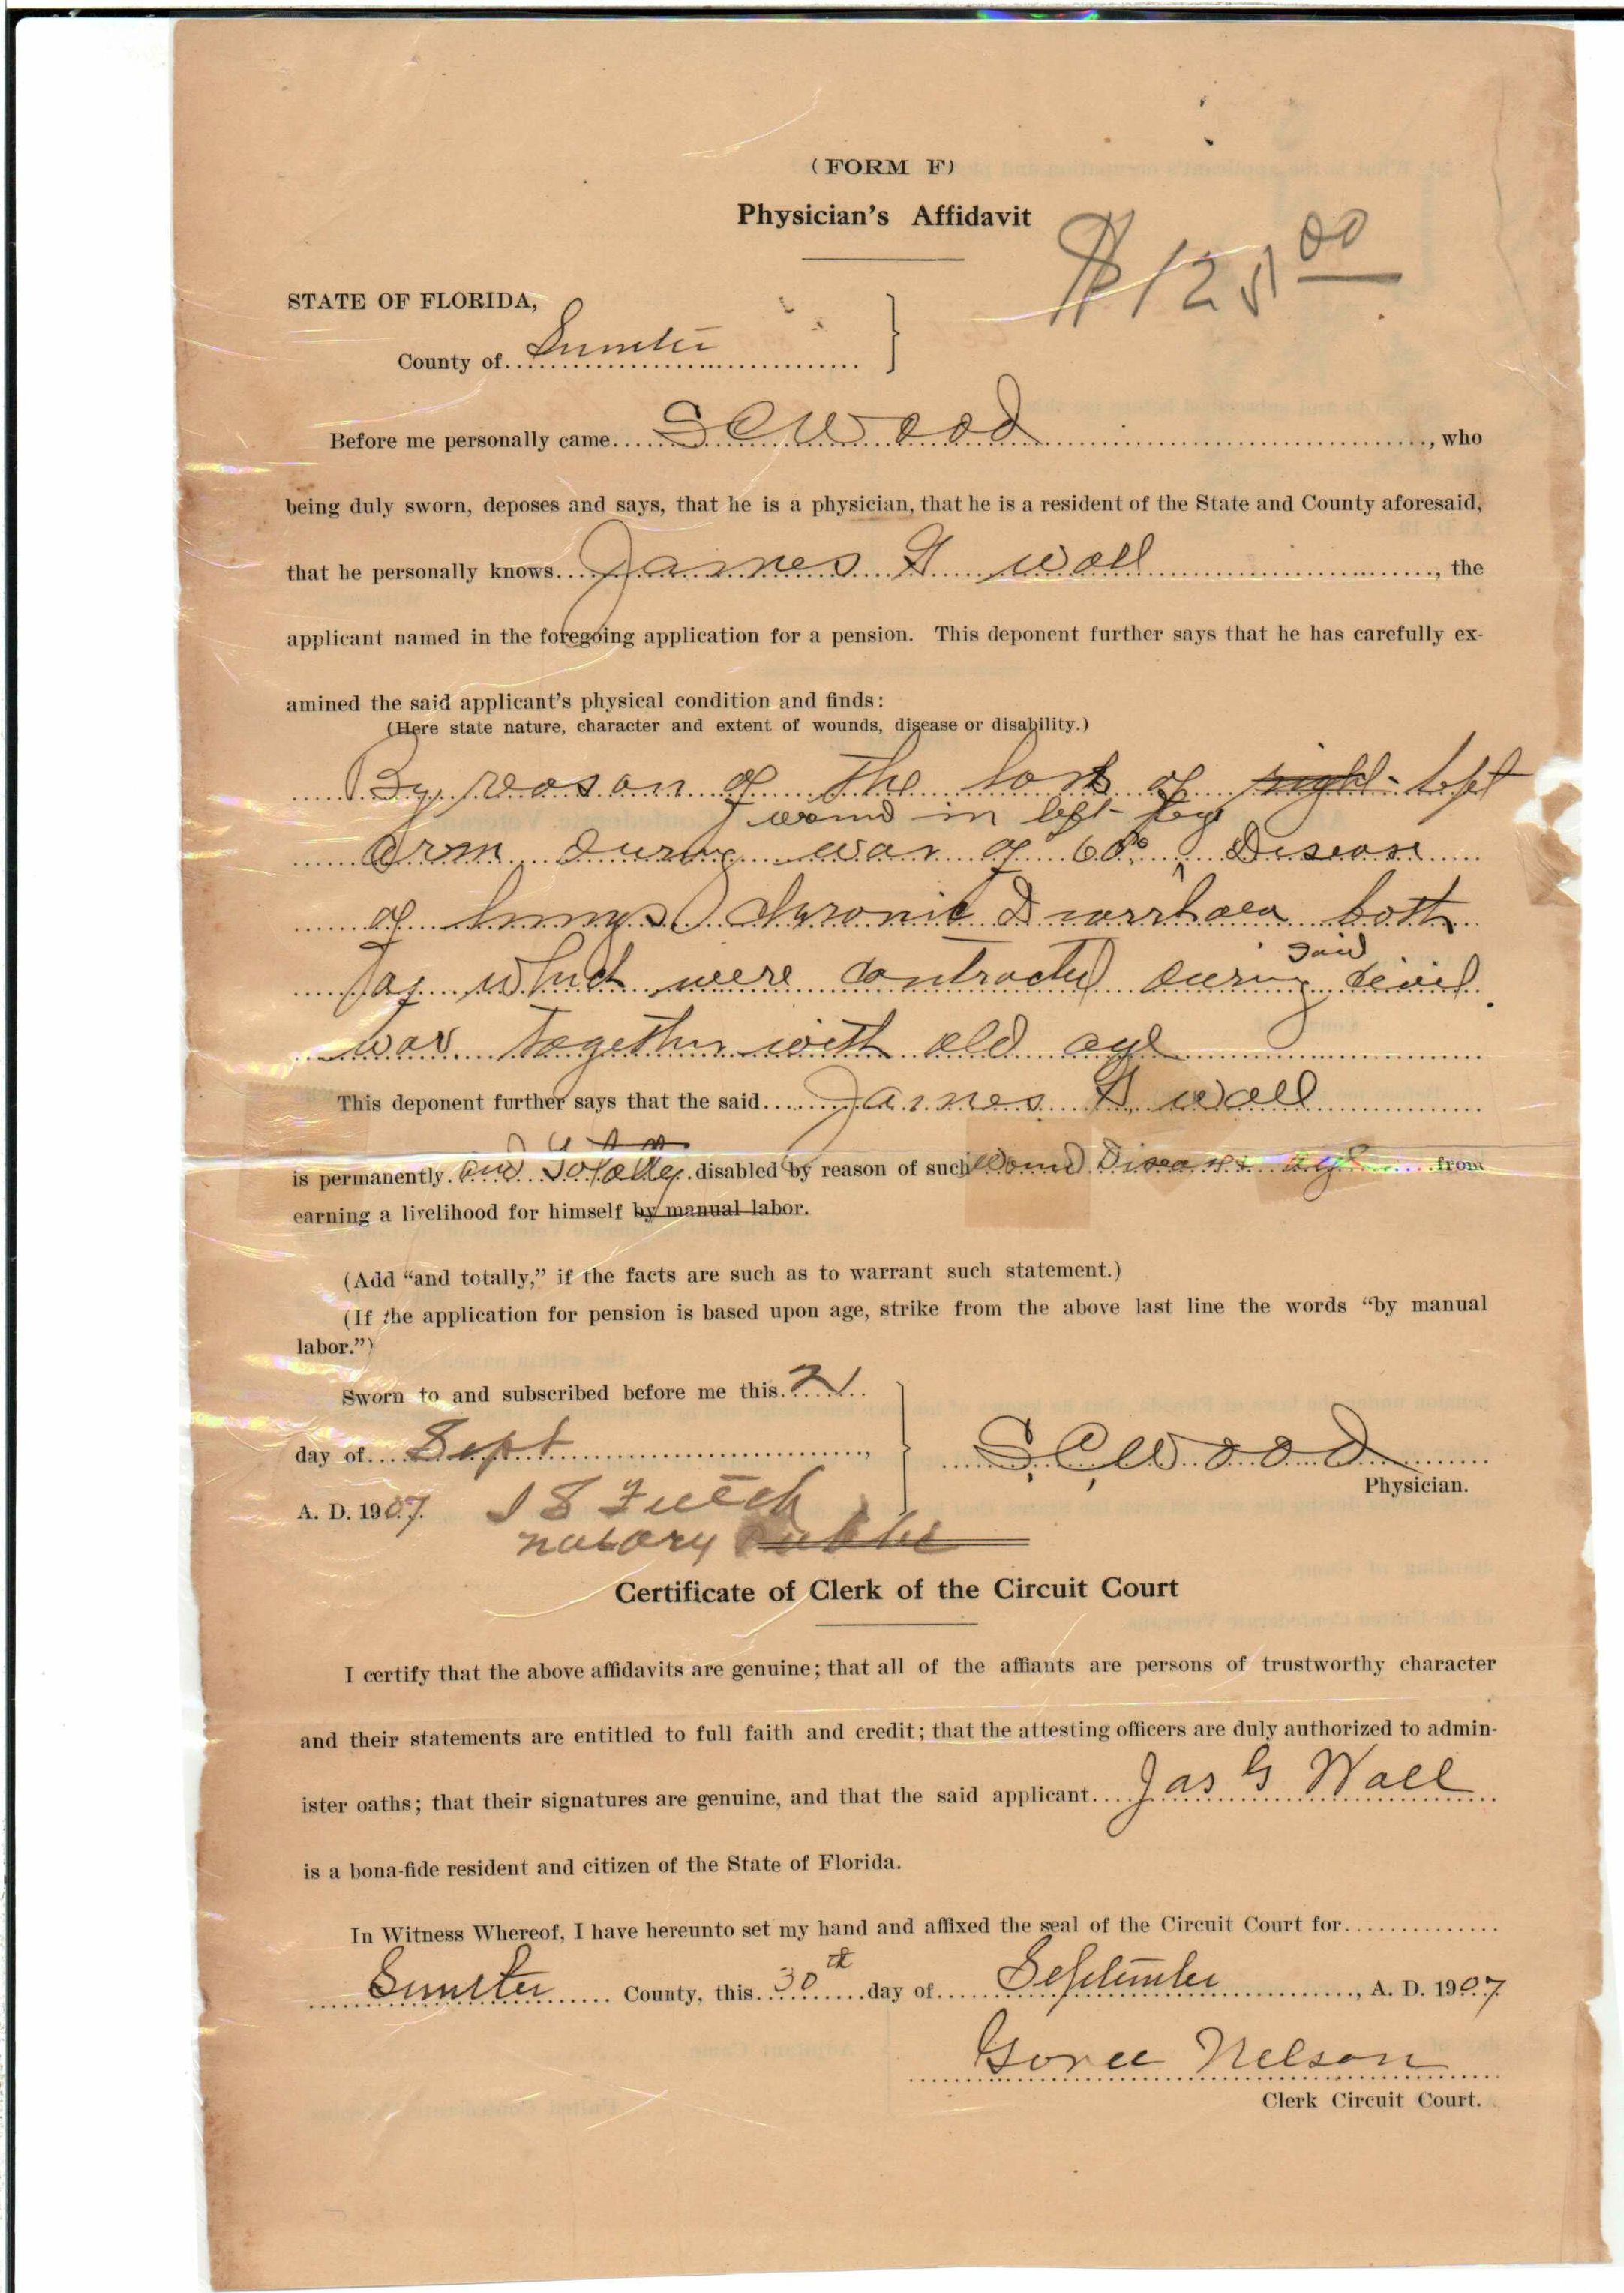 (FORM F)
Physician's Affidavit
$125 00
STATE OF FLORIDA,
County of Sumter
Before me personally came S C Wood, who
being duly sworn, deposes and says, that he is a physician, that he is a resident of the State and County aforesaid,
that he personally knows James G Wall, the
applicant named in the foregoing application for a pension. This deponent further says that he has carefully ex-
amined the said applicant's physical condition and finds:
(Here state nature, character and extent of wounds, disease or disability.)
By reason of the lost of right left
& wound in left leg
arm during war of 60s, Disease
of lungs Chronic Diarrhaea both
of which were contracted during said civil
war together with old age
This deponent further says that the said James G. Wall
is permanently and Totally disabled by reason of such wound Disease & age from
earning a livelihood for himself by manual labor.
(Add "and totally," if the facts are such as to warrant such statement.)
(If the application for pension is based upon age, strike from the above last line the words "by manual
labor.")
Sworn to and subscribed before me this 21
day of Sept,
S. C. Wood
Physician.
A. D. 1907. Futch
notary Public
Certificate of Clerk of the Circuit Court
I certify that the above affidavits are genuine; that all of the affiants are persons of trustworthy character
and their statements are entitled to full faith and credit; that the attesting officers are duly authorized to admin-
ister oaths; that their signatures are genuine, and that the said applicant Jas G Wall
is a bona-fide resident and citizen of the State of Florida.
In Witness Whereof, I have hereunto set my hand and affixed the seal of the Circuit Court for
Sumter County, this 30th day of September, A. D. 1907
Goree Nelson
Clerk Circuit Court.